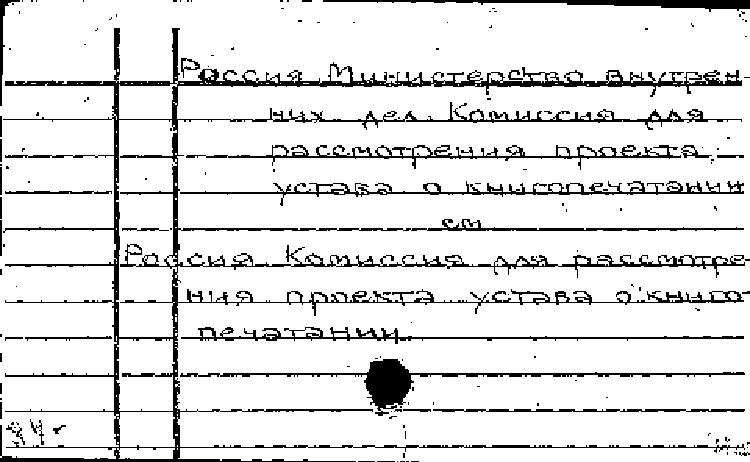 Россия Министерство внутрен-
них дел. Комиссия для
рассмотрения проекта
устава о книгопечатании
см
Россия. Комиссия для рассмотре-
ния проекта устава о книго-
печатании.